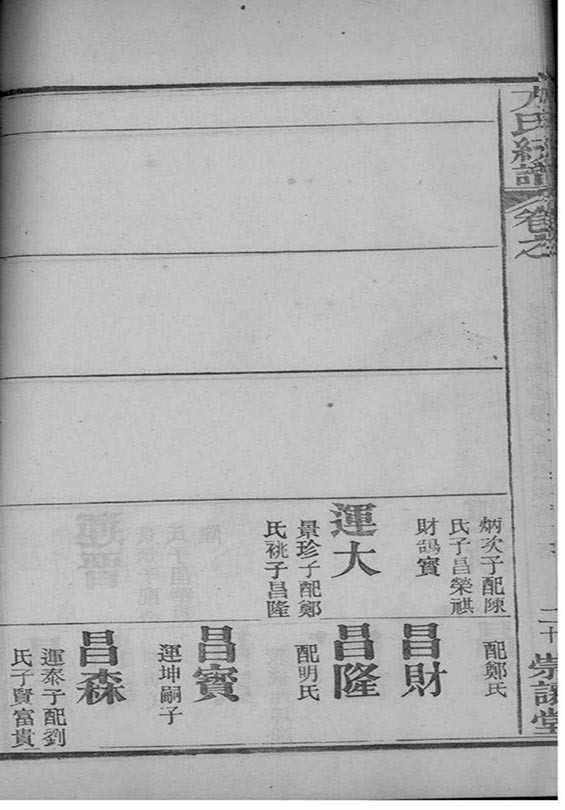 卷之
二十
崇讓堂
炳次子配陳
氏子昌榮祺
財鵠賓
運大
景珍子配鄭
氏祧子昌隆
配鄭氏
昌財
昌隆
配明氏
昌賓
運坤嗣子
昌森
運泰子配劉
氏子賢富貴